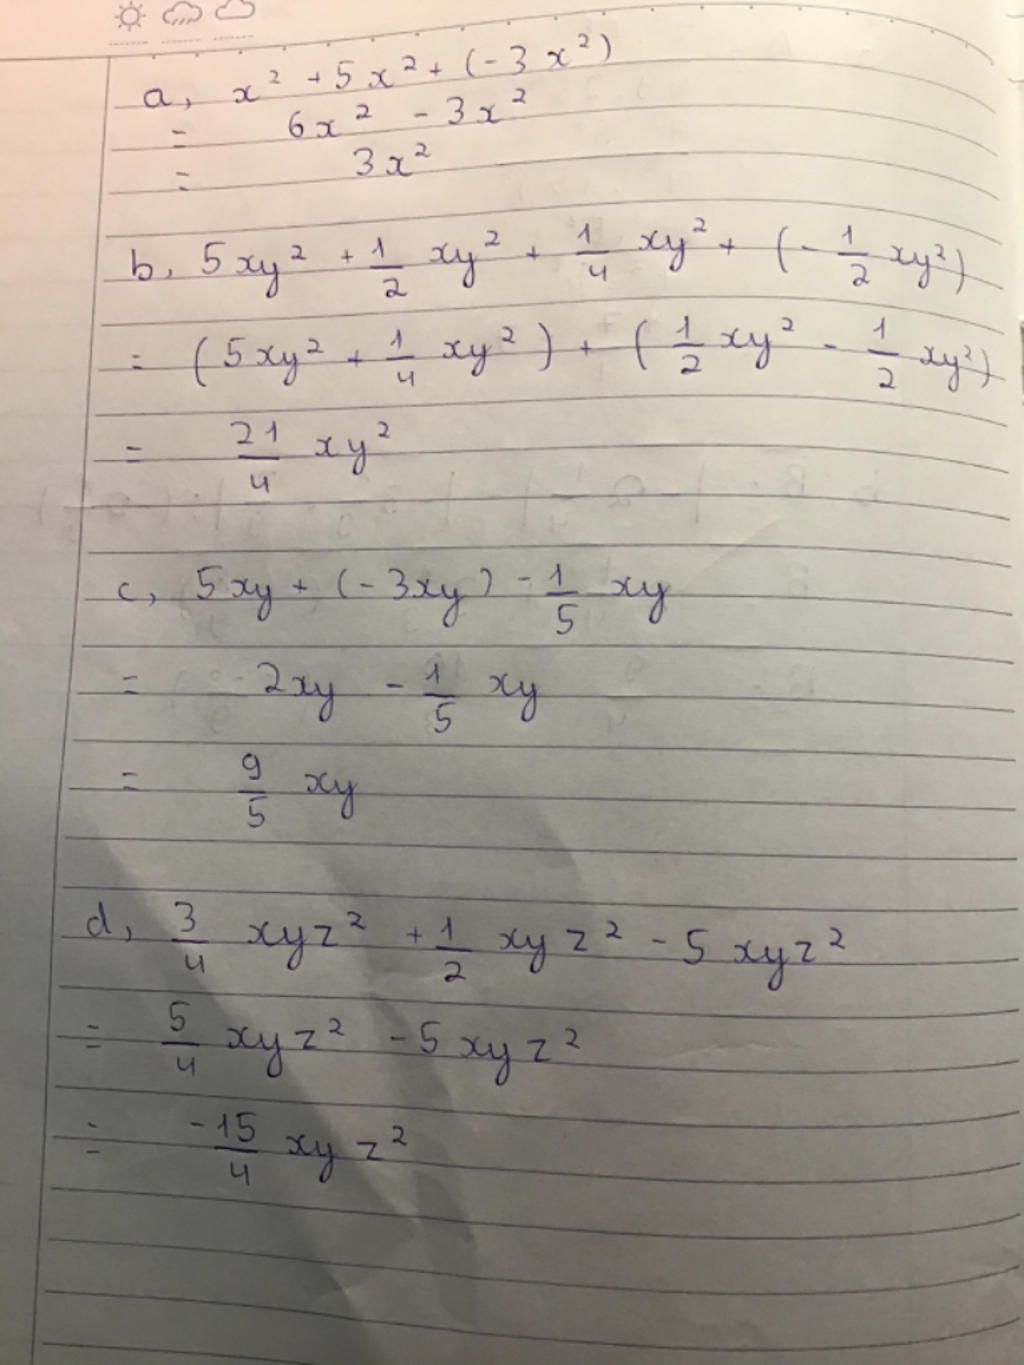 a, x² + 5x² + (-3x²)
= 6x² - 3x²
= 3x²
b, 5xy² + 1/2 xy² + 1/4 xy² + (-1/2 xy²)
= (5xy² + 1/4 xy²) + (1/2 xy² - 1/2 xy²)
= 21/4 xy²
c, 5xy + (-3xy) - 1/5 xy
= 2xy - 1/5 xy
= 9/5 xy
d, 3/4 xyz² + 1/2 xyz² - 5xyz²
= 5/4 xyz² - 5xyz²
= -15/4 xyz²